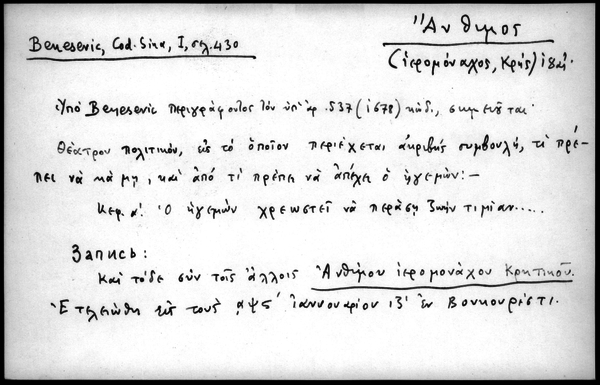 Ἄνθιμος
Benesevic, Cod. Sina, I, σελ. 430
(ἱερομόναχος, Κρής) ιηʹ αἰ.
Ὑπὸ Benesevic περιγράφοντος τὸν ὑπ' ἀρ. 537 (1678) κώδ., σημειοῦται·
Θέατρον πολιτικόν, εἰς τὸ ὁποῖον περιέχεται ἀκριβὴς συμβουλή, τί πρέ-
πει νὰ κάμῃ, καὶ ἀπὸ τί πρέπει νὰ ἀπέχει ὁ ἡγεμών:-
Κεφ. αʹ. Ὁ ἡγεμὼν χρεωστεῖ νὰ περάσῃ ζωὴν τιμίαν.....
Запись:
Καὶ τόδε σὺν τοῖς ἄλλοις Ἀνθίμου ἱερομονάχου Κρητικοῦ.
Ἐτελειώθη εἰς τοὺς ͵αψ ἰαννουαρίου ἐν Βουκουρέστι.